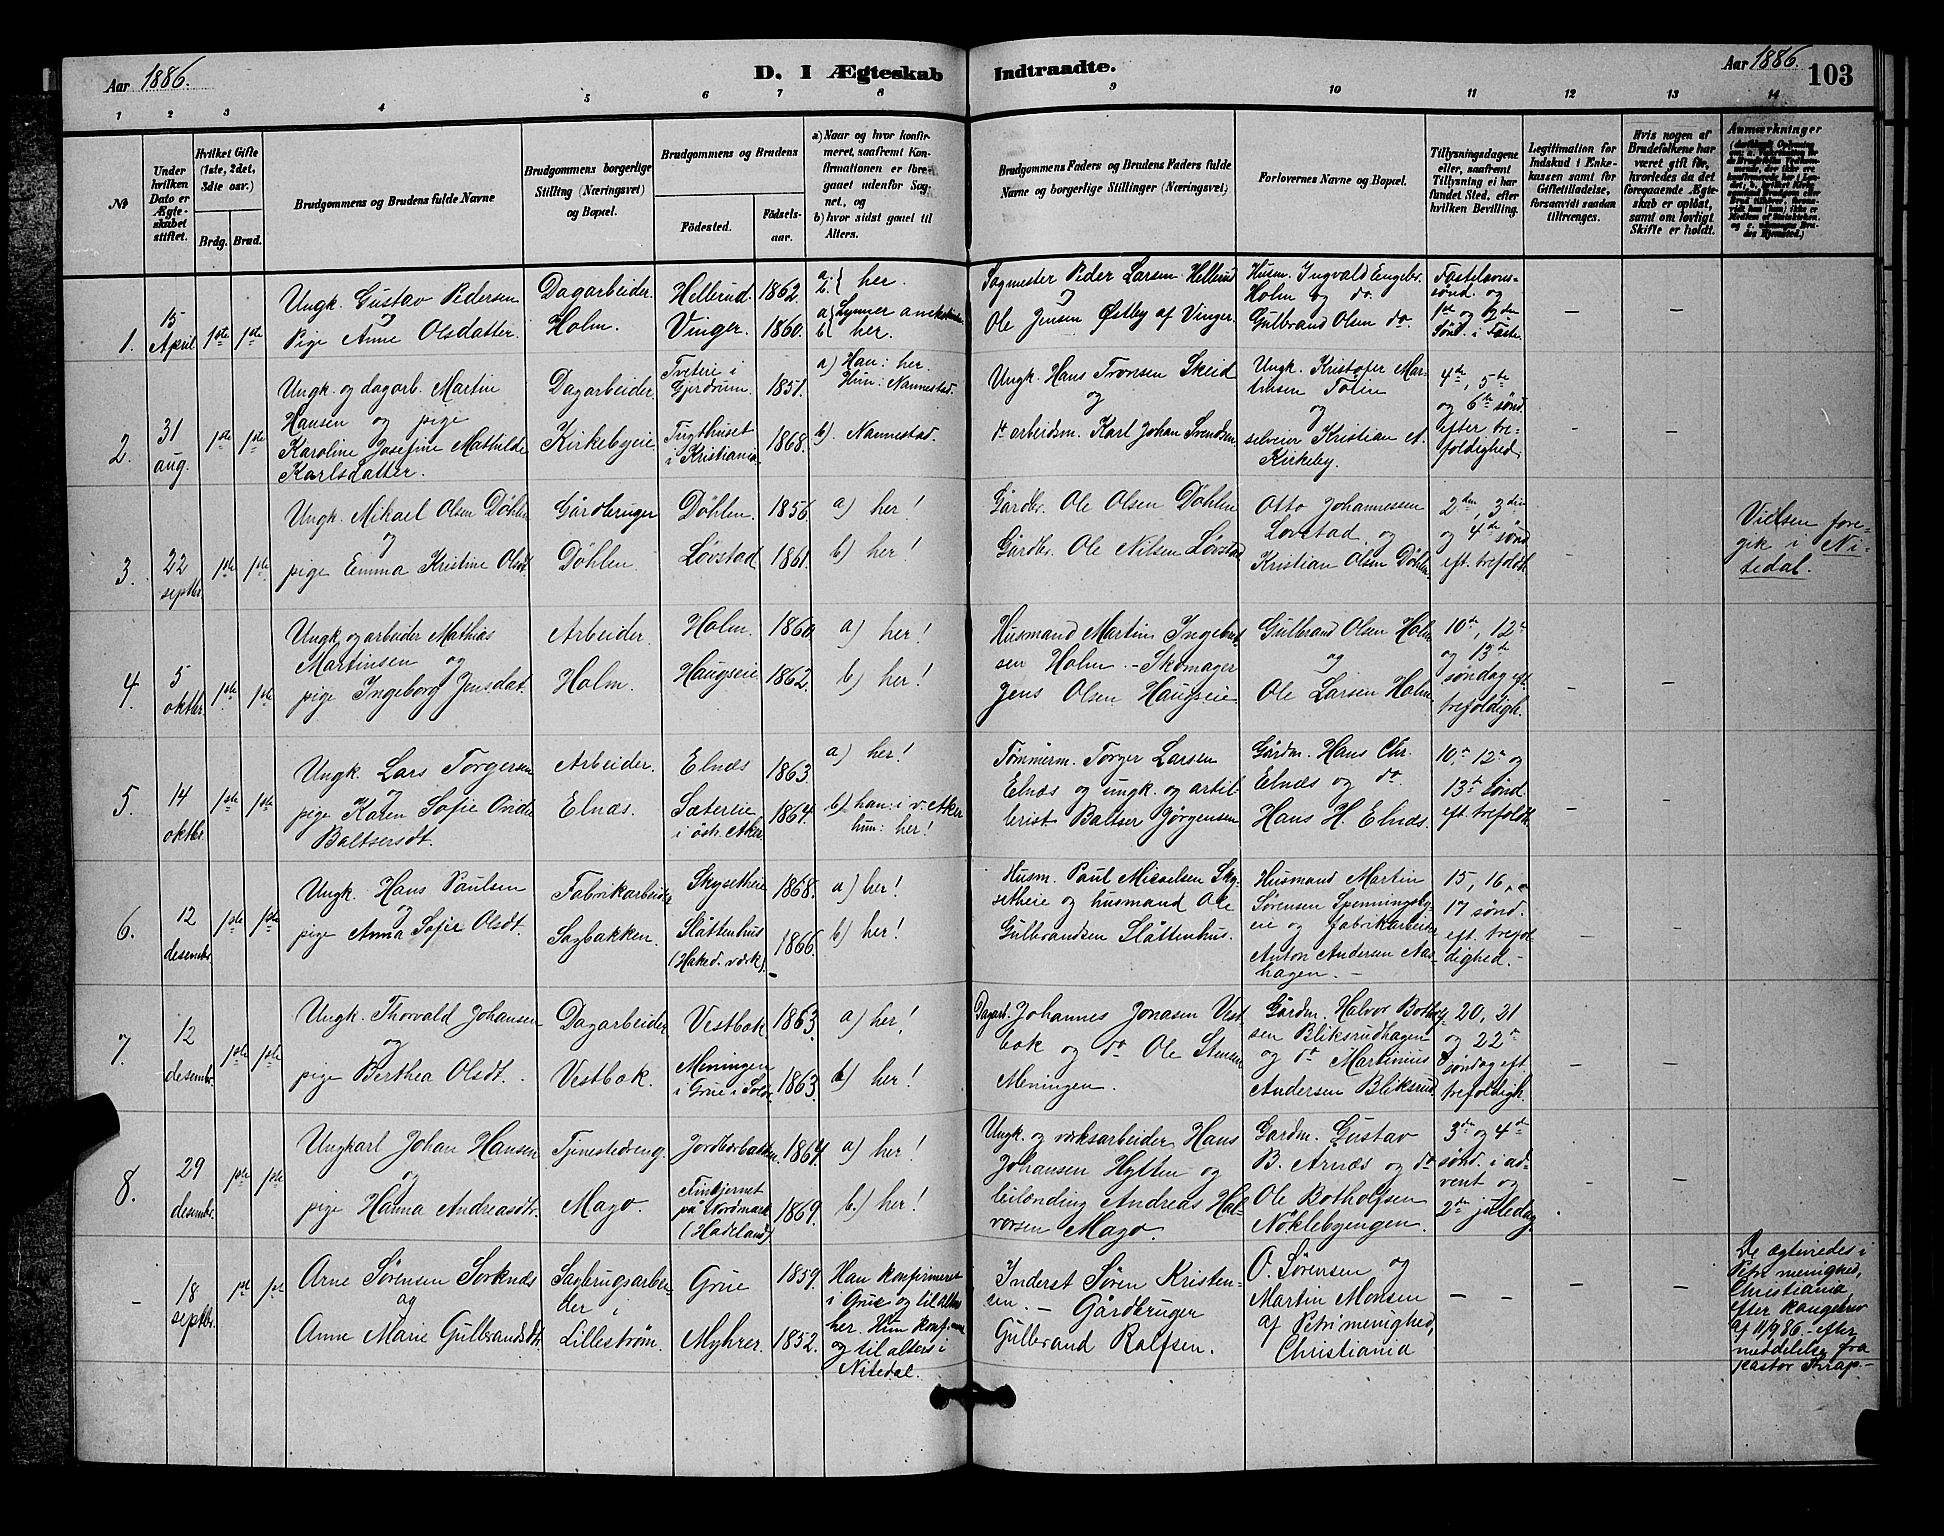 Aar 1886.
D. I Ægteskab Indtraadte.
Aar 1886. 103
1 2 3 4 5 6 7 8 9 10 11 12 13 14
No
Under hvilken Dato er Ægteskabet stiftet.
Hvilket Gifte (1ste, 2det, 3die osv.)
Brdg. Brud.
Brudgommens og Brudens fulde Navne
Brudgommens borgerlige Stilling (Næringsvei) og Bopæl.
Brudgommens og Brudens
Födested.
Födselsaar.
a) Naar og hvor konfirmeret, saafremt Konfirmationen er foregaaet udenfor Sognet, og
b) hvor sidst gaaet til Alters.
Brudgommens Faders og Brudens Faders fulde Navne og borgerlige Stillinger (Næringsvei)
Forlovernes Navne og Bopæl.
Tillysningsdagene eller, saafremt Tillysning ei har fundet Sted, efter hvilken Bevilling.
Legitimation for Indskud i Enkekassen samt for Giftetilladelse, forsaavidt saadan tiltrænges.
Hvis nogen af Brudefolkene har været gift før, hvorledes da det foregaaende Ægteskab er opløst, samt om lovligt Skifte er holdt.
Anmærkninger
1. 15 April 1ste 1ste
Ungk. Gustav Pedersen
og
Pige Anne Olsdatter.
Dagarbeider.
Holm.
Hellerud. 1862.
Vinger. 1860.
a. b. { her.
b) her.
Sagmester Peder Larsen Hellerud
og
Ole Jensen Østby af Vinger.
Husm. Ingvald Engebr.
Holm og do.
Gulbrand Olsen do.
Fastelavns-
sönd. og
1ste og 2den
Sönd. i Faste.
– –
2. 31 aug. 1ste 1ste
Ungk. og dagarb. Martin
Hansen og pige
Karoline Josefine Mathilde
Karlsdatter.
Dagarbeider.
Kirkebyeie
Tveteie i
Gjerdrum. 1851.
Tugthuset
i Kristiania. 1868.
a) Han: her.
Hun: Nannestad.
b). Nannestad.
Ungk. Hans Tronsen Skeid
og
arbeidsm. Karl Johan Svendsen
Ungk. Kristofer Mar-
tinsen
og
selveier Kristian A.
Kirkeby.
4de, 5te
og 6te sönd.
efter tre-
foldighed.
– –
3. 22 septbr. 1ste 1ste
Ungk. Mikael Olsen Döhlen
og
pige Emma Kristine Olsdt.
Gårdbruger
Döhlen.
Döhlen. 1856.
Lövstad 1861.
a) her!
b) her!
Gårdbr. Ole Olsen Döhlen
Gårdbr. Ole Nilsen Lövstad
Otto Johannessen
Lövstad og
Kristian Olsen Döhlen.
2den, 3die
og 4de sönd
eft. trefoldt.
Vielsen fore-
gik i Ni-
tedal.
4. 5 oktbr. 1ste 1ste
Ungk. og arbeider Mathias
Martinsen og
pige Ingeborg Jensdat.
Arbeider.
Holm.
Holm. 1860
Haugseie 1862.
a) her!
b) her!
Husmand Martin Ingebret-
sen Holm. – Skomager
Jens Olsen Haugseie
Gulbrand Olsen Holm
og
Ole Larsen Holm.
10de, 12te
og 13de
söndag eft.
trefoldigh.
– –
5. 14 oktbr. 1ste 1ste
Ungk. Lars Torgersen
og
pige Karen Sofie
Baltsersdt.
Arbeider.
Elnæs.
Elnæs 1863.
Sætereie
i östr. Aker 1864.
a) her!
b) han: i v. Aker
hun: her!
Tömmerm. Torger Larsen
Elnæs og ungk. og artil-
lerist Baltser Jörgensen
Gårdm. Hans Chr.
Elnæs og do
Hans H. Elnæs.
10, 12te og
13de sönd
eft. trefoldt.
– –
6. 12 desembr. 1ste 1ste
Ungk. Hans Paulsen
og
pige Anna Sofie Olsdt.
Fabrikarbeider
Sagbakken.
Skysetheie 1868.
Slåttenhus
(Haked. værk). 1866.
a) her!
b) her!
Husm. Paul Micaelsen Sky-
setheie og husmand Ole
Gulbrandsen Slåttenhus.
Husmand Martin
Sørensen Spenningsby-
eie og fabrikarbeider
Anton Andersen Aas-
hagen. –
15, 16, og
17 sönd.
eft. trefol-
dighed. –
– –
7. 12 desembr. 1ste 1ste
Ungk. Thorvald Johansen
og
pige Berthea Olsdt.
Dagarbeider
Vestbok.
Vestbok 1863.
Meningen
i Grue i Solör 1863.
a) her!
b) her!
Dagarb. Johannes Jonasen Vest-
bok og do Ole Stensen
Meningen.
Gårdm. Halvor Bothof-
sen Bliksrudhagen
og do Martinius
Andersen Bliksrud.
20, 21
og 22de
söndag eft
trefoldigh.
– –
8. 29 desembr. 1ste 1ste
Ungkarl Johan Hansen
og
pige Hanna Andreasdtr.
Tjenestedreng.
Mago.
Jordbærbakken. 1864.
på Nordmark
(Hadeland) 1869.
a) her!
b.) her!
Ungk. og værksarbeider Hans
Johansen Hytten og
leilænding Andreas Hal-
vorsen Mago.
Gardm. Gustav
B. Arnæs og do
Ole Botholfsen
Nöklebyengen.
3de og 4de
sönd. i ad-
vent og
2den juledag.
– 18 septbr. 1ste 1ste
Arne Sörensen Sorknæs
og
Anne Marie Gulbrandsdt.
Sagbrugsarbei-
der i
Lilleström.
Grue 1859.
Myhrer. 1852.
Han konfirmeret
i Grue og til alters
her. Hun konf.
og til alters i
Nitedal.
Inderst Sören Kristen-
sen. – Gårdbruger
Gulbrand Ralfsen.
O. Sørensen og
Martin Monsen
af Petri menighed,
Christiania
– – – –
De ægtevedes i
Petri menighed,
Christiania,
efter kongebrev
af 11/9 86. – efter
meddelelse fra
pastor Krap. –